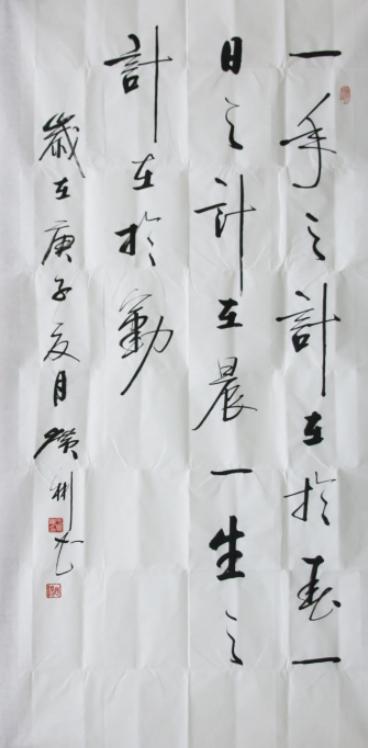 一年之計在於春一
日之計在晨一生之
計在於勤
歲在庚子夏月彬书